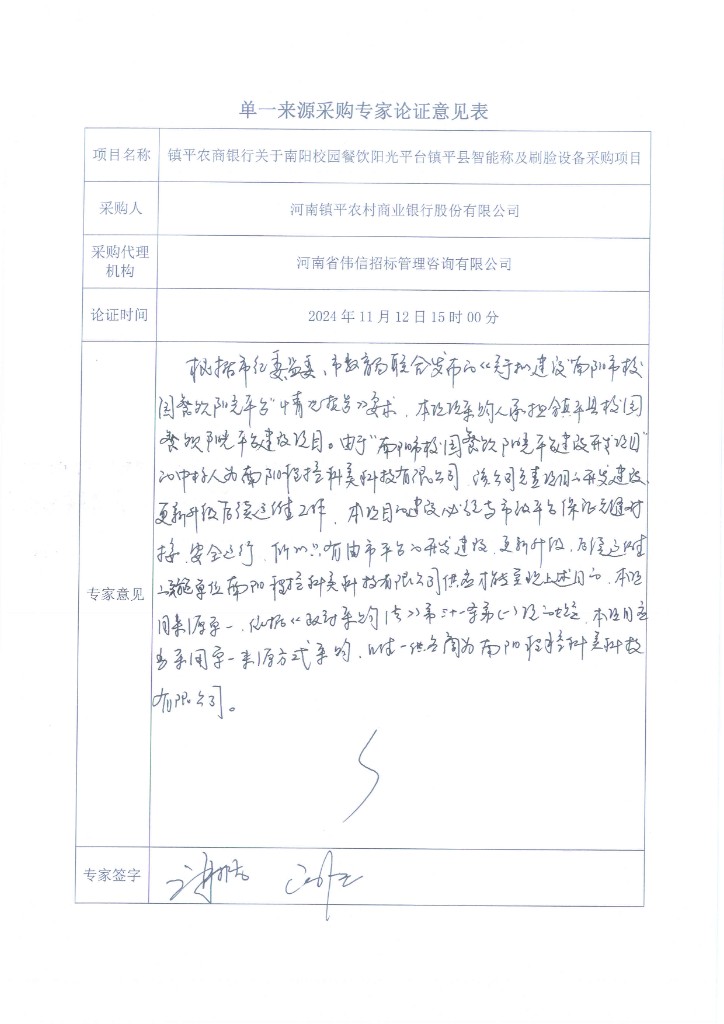 单一来源采购专家论证意见表
项目名称
镇平农商银行关于南阳校园餐饮阳光平台镇平县智能称及刷脸设备采购项目
采购人
河南镇平农村商业银行股份有限公司
采购代理
机构
河南省伟信招标管理咨询有限公司
论证时间
2024年11月12日15时00分
专家意见
根据市纪委监委、市教育局联合发布的《关于拟建设"南阳市校
园餐饮阳光平台"情况报告》要求,本项目采购人承担镇平县校园
餐饮阳光平台建设项目。由于"南阳市校园餐饮阳光平台建设开发项目"
的中标人为南阳 科美科技有限公司,该公司负责项目的开发建设、
更新升级后续运维工作,本项目的建设必须与市级平台保证无缝对
接,安全运行,所以只有由市平台的开发建设、更新升级、后续运维
实施单位南阳 科美科技有限公司供应才能实现上述目的,本项
目来源单一,依据《政府采购法》第三十一条第(一)项的规定,本项目应
当采用单一来源方式采购,唯一供应商为南阳 科美科技
有限公司。
专家签字